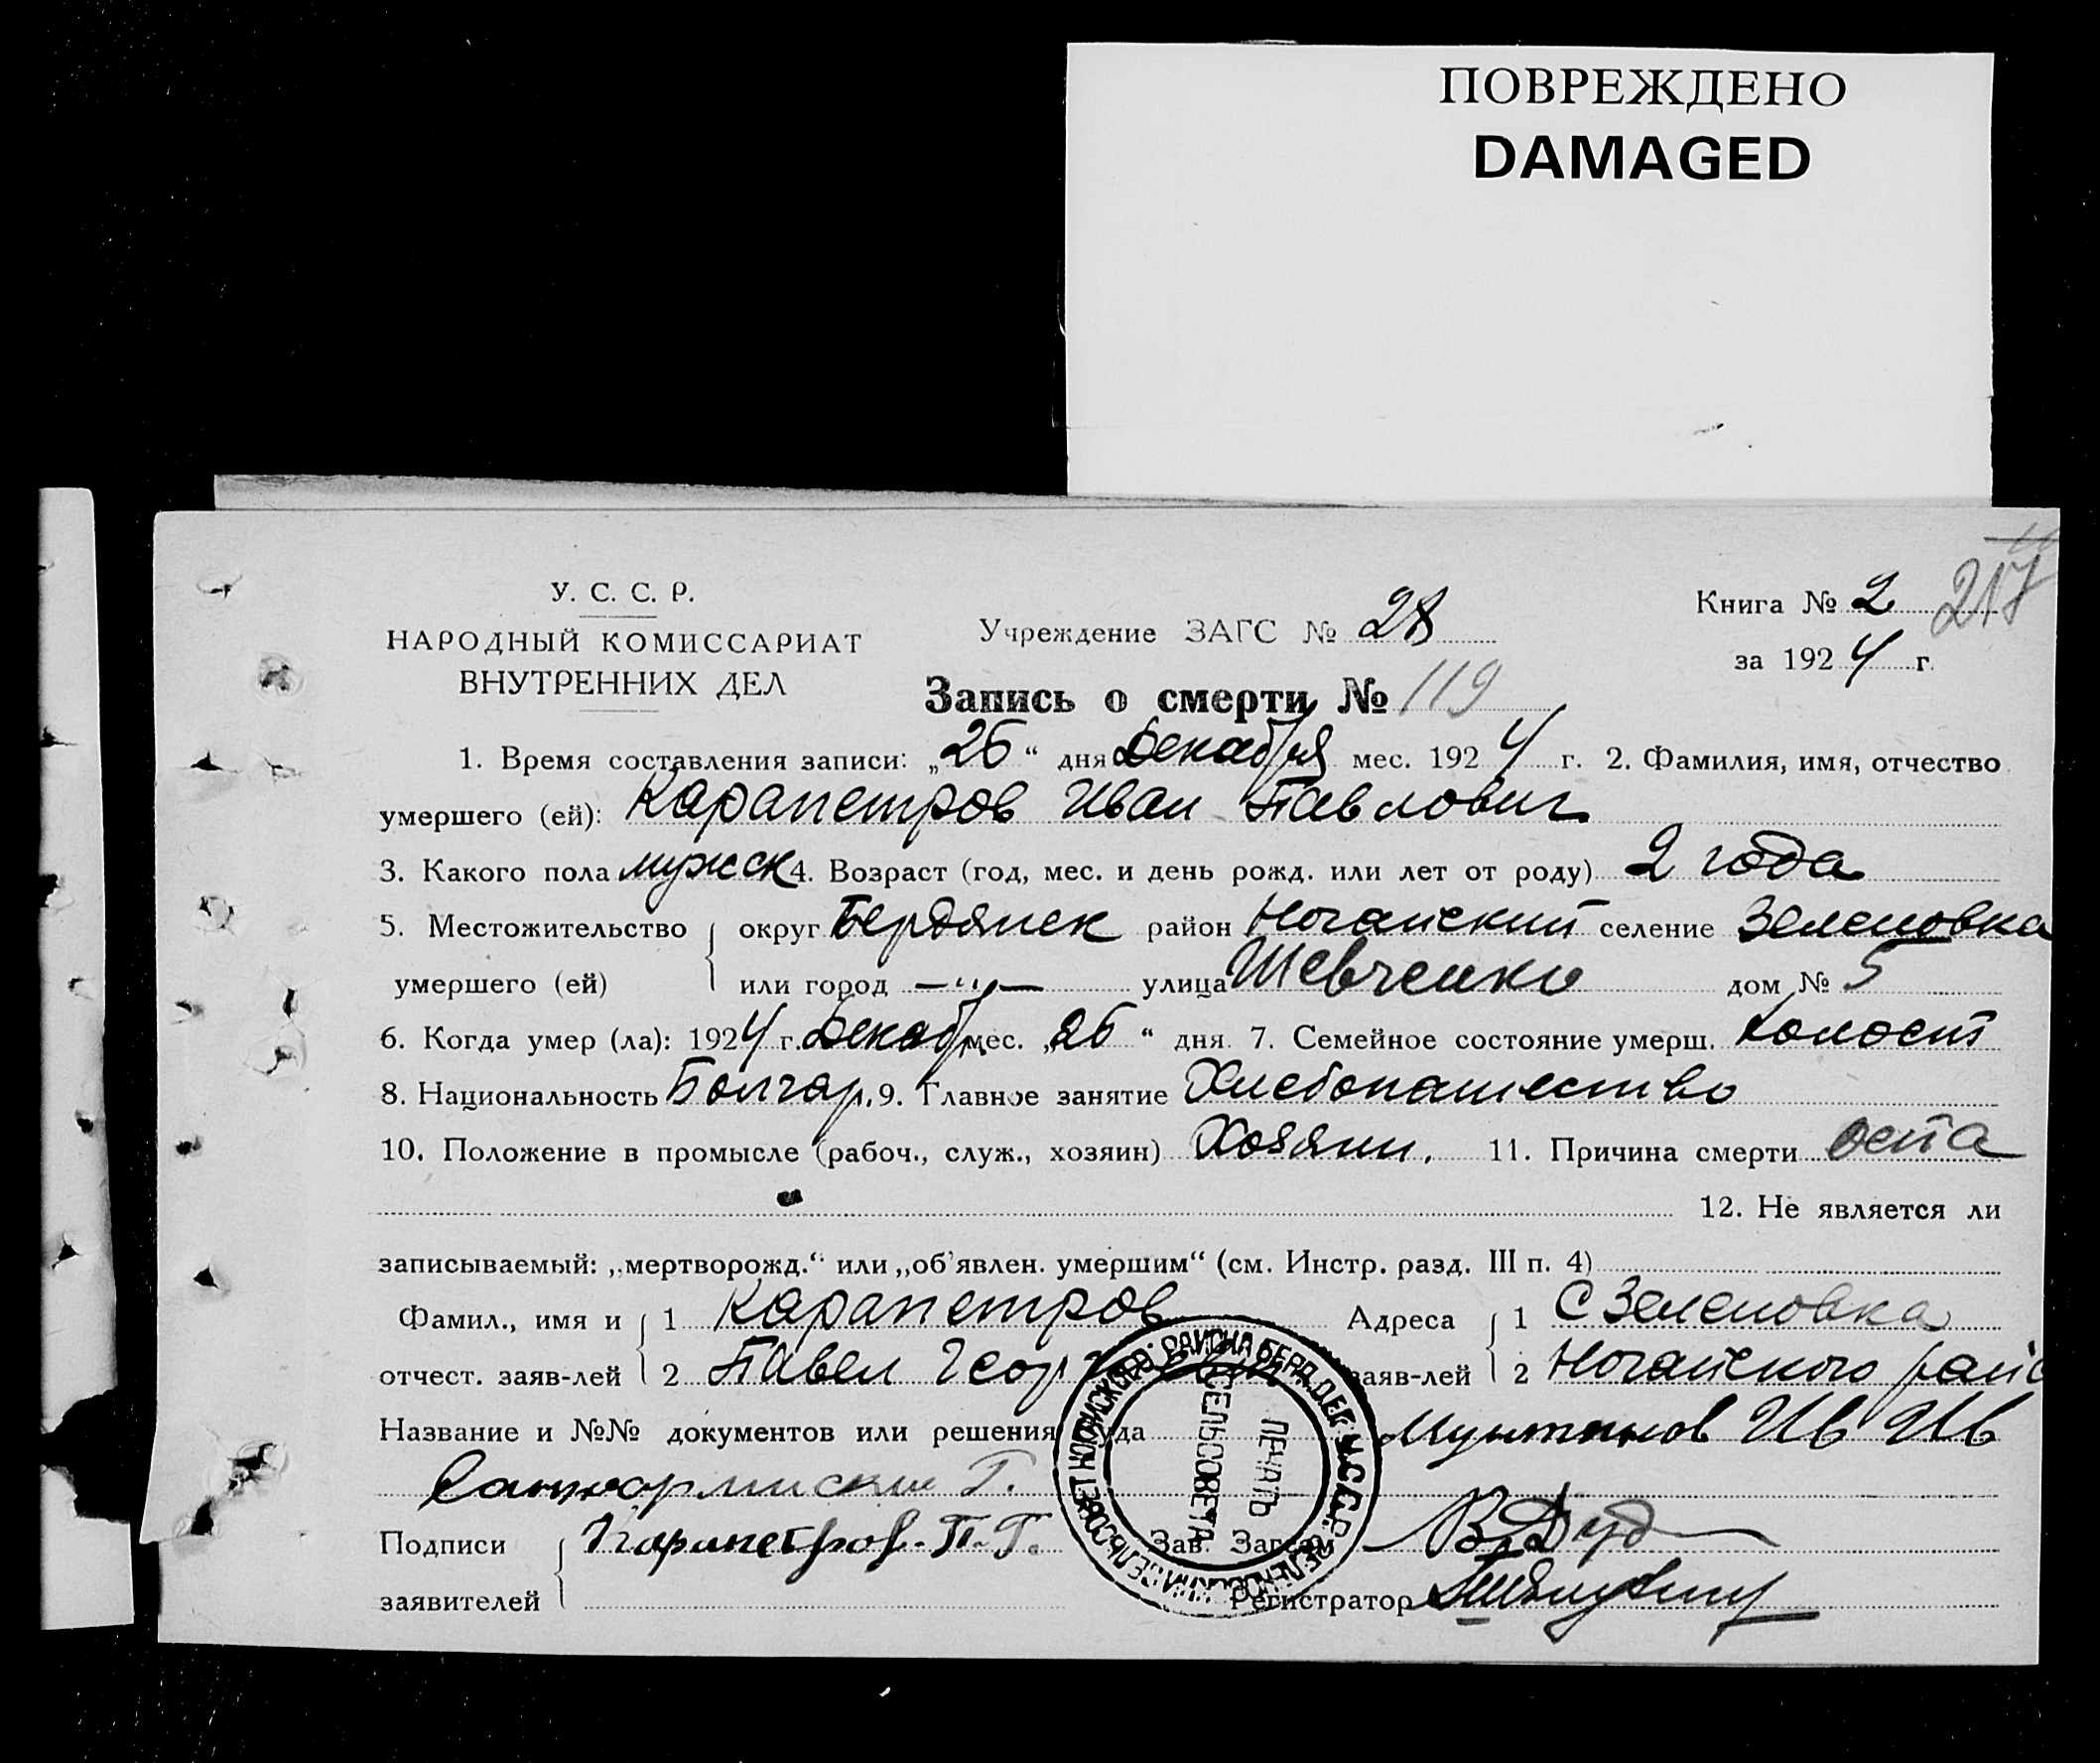 ПОВРЕЖДЕНО
DAMAGED
У. С. С. Р.
НАРОДНЫЙ КОМИССАРИАТ
ВНУТРЕННИХ ДЕЛ
Учреждение ЗАГС № 28
Книга № 2 217
за 1924 г.
Запись о смерти № 119
1. Время составления записи: „26“ дня Декабря мес. 1924 г. 2. Фамилия, имя, отчество
умершего (ей): Карапетров Иван Павлович
3. Какого пола мужск 4. Возраст (год, мес. и день рожд. или лет от роду) 2 года
5. Местожительство округ Бердянск район Ногайский селение Зеленовка
умершего (ей) или город —"— улица Шевченко дом № 5
6. Когда умер (ла): 1924 г. Декабр мес. „26“ дня. 7. Семейное состояние умерш. холост
8. Национальность Болгар. 9. Главное занятие Хлебопашество
10. Положение в промысле (рабоч., служ., хозяин) Хозяин. 11. Причина смерти оспа
12. Не является ли
записываемый: „мертворожд.“ или „об'явлен. умершим“ (см. Инстр. разд. III п. 4)
Фамил., имя и 1 Карапетров Адреса 1 С Зеленовка
отчест. заяв-лей 2 Павел Георгиевич заяв-лей 2 Ногайского райо
Название и №№ документов или решения суда Мунтянов Ив Ив
Г.
Подписи Карапетров. П. Г. Зав. Загсом В. Дуд
заявителей Регистратор
ПЕЧАТЬ
СЕЛЬСОВЕТА